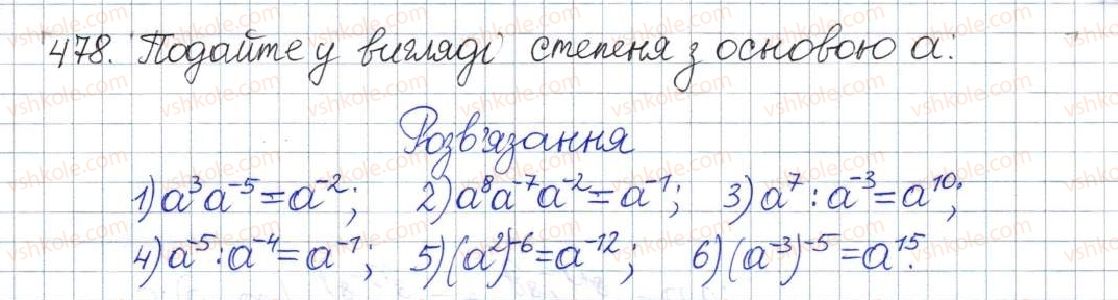 478. Подайте у вигляді степеня з основою a:
Розв'язання
1) a³a⁻⁵=a⁻²; 2) a⁸a⁻⁷a⁻²=a⁻¹; 3) a⁷:a⁻³=a¹⁰;
4) a⁻⁵:a⁻⁴=a⁻¹; 5) (a²)⁻⁶=a⁻¹²; 6) (a⁻³)⁻⁵=a¹⁵.
vshkole.com